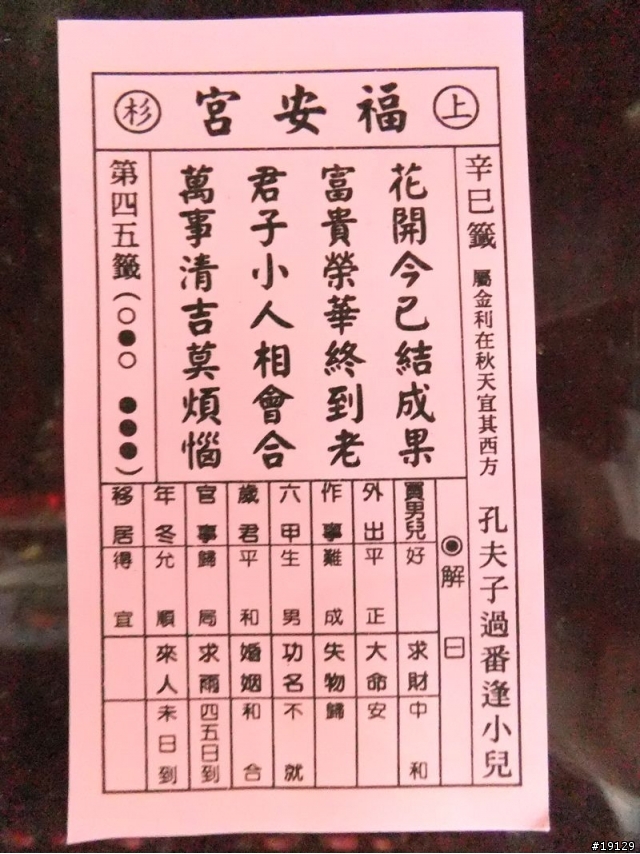 上 福安宮 杉
辛巳籤 屬金利在秋天宜其西方 孔夫子過番逢小兒
花開今已結成果
富貴榮華終到老
君子小人相會合
萬事清吉莫煩惱
第四五籤(○●○ ●●●)
◉解曰
買男兒 好 求財 中和
外出 平正 大命 安
作事 難成 失物 歸
六甲 生男 功名 不就
歲君 平和 婚姻 和合
官事 歸局 求雨 四五日到
年冬 允順 來人 未日到
移居 得宜
#19129